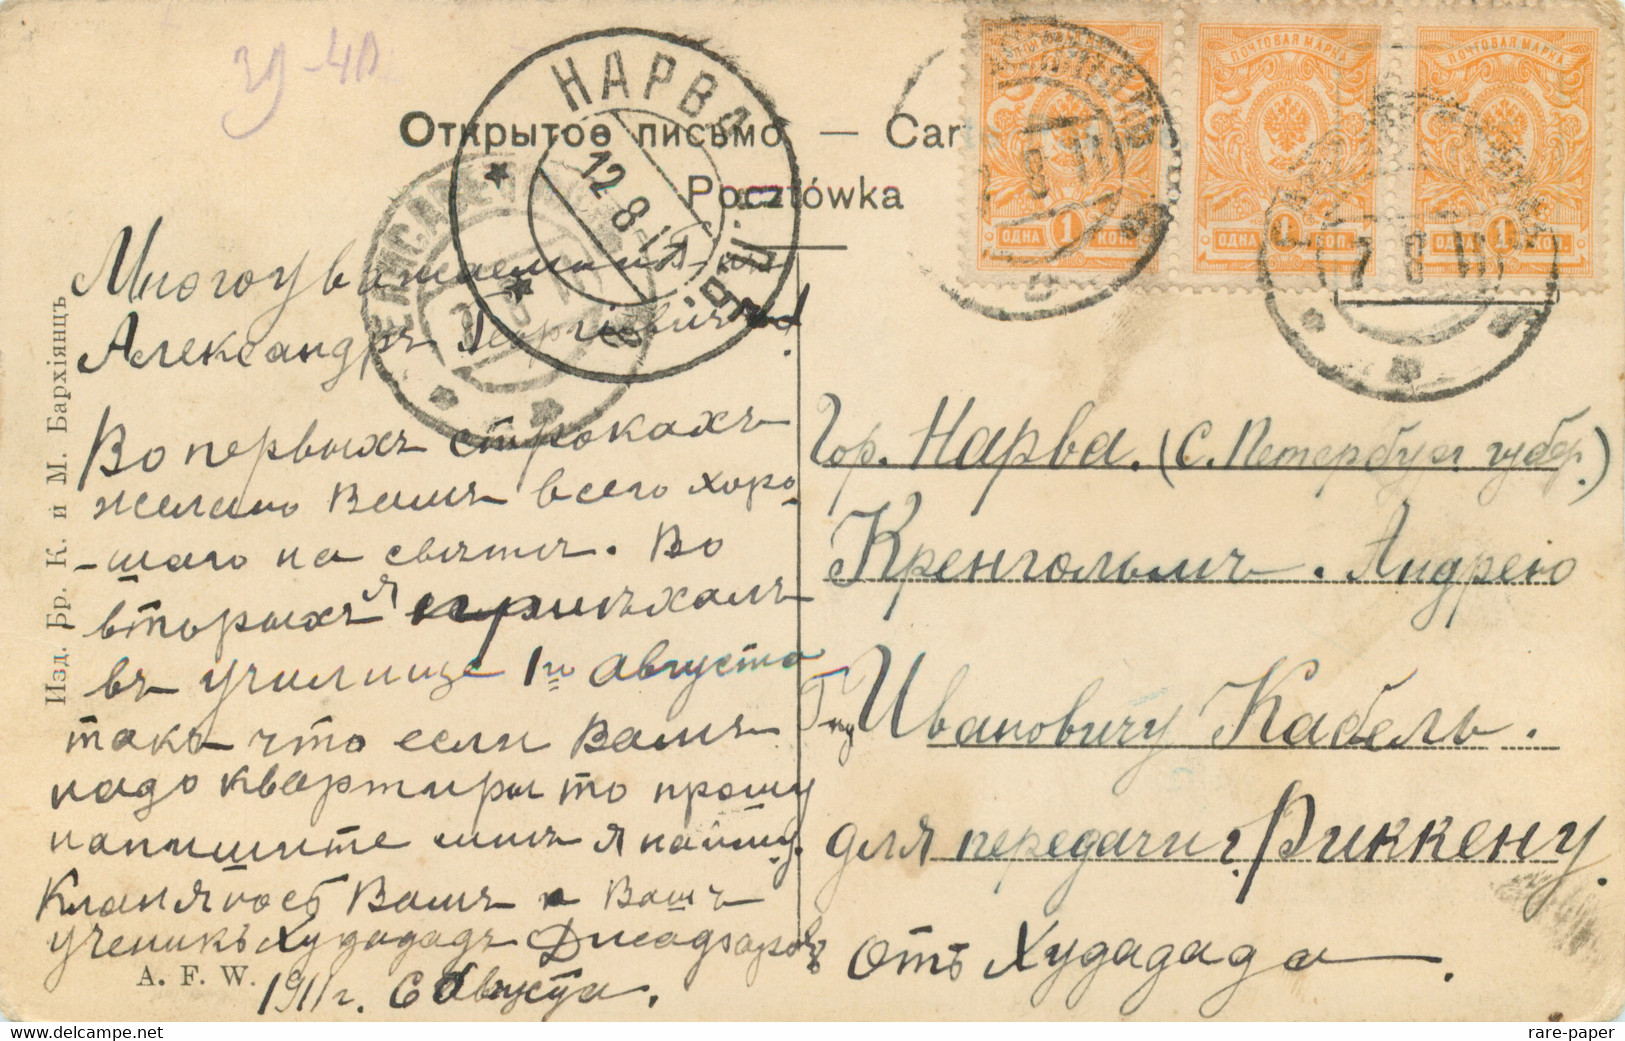 39-40
Открытое письмо. — Cart
Pocztówka
НАРВА
12 8-11
ЕЛИСАВ
ПОЧТОВАЯ МАРКА
ПОЧТОВАЯ МАРКА
ОДНА 1 КОП.
ОДНА 1 КОП.
ОДНА 1 КОП.
7 8 11
Изд. Бр. К. и М. Бархіянцъ
Многоуважаемый
Александръ Георгіевичъ!
Во первыхъ строкахъ
желаю Вамъ всего хоро-
-шаго на свѣтѣ. Во
вторыхъ я пріѣхалъ
въ училище 1го августа
такъ что если Вамъ
надо квартиры то прошу
напишите мнѣ я найму.
Кланяюсь Вамъ Вашъ
ученикъ Худададъ Джафаровъ
1911 г. 6 Августа.
A. F. W.
Гор. Нарва. (С. Петербург губер.)
Кренгольмъ. Андрею
Ивановичу Кабель.
для передачи г. Риккену.
Отъ Худадада.
rare-paper
delcampe.net